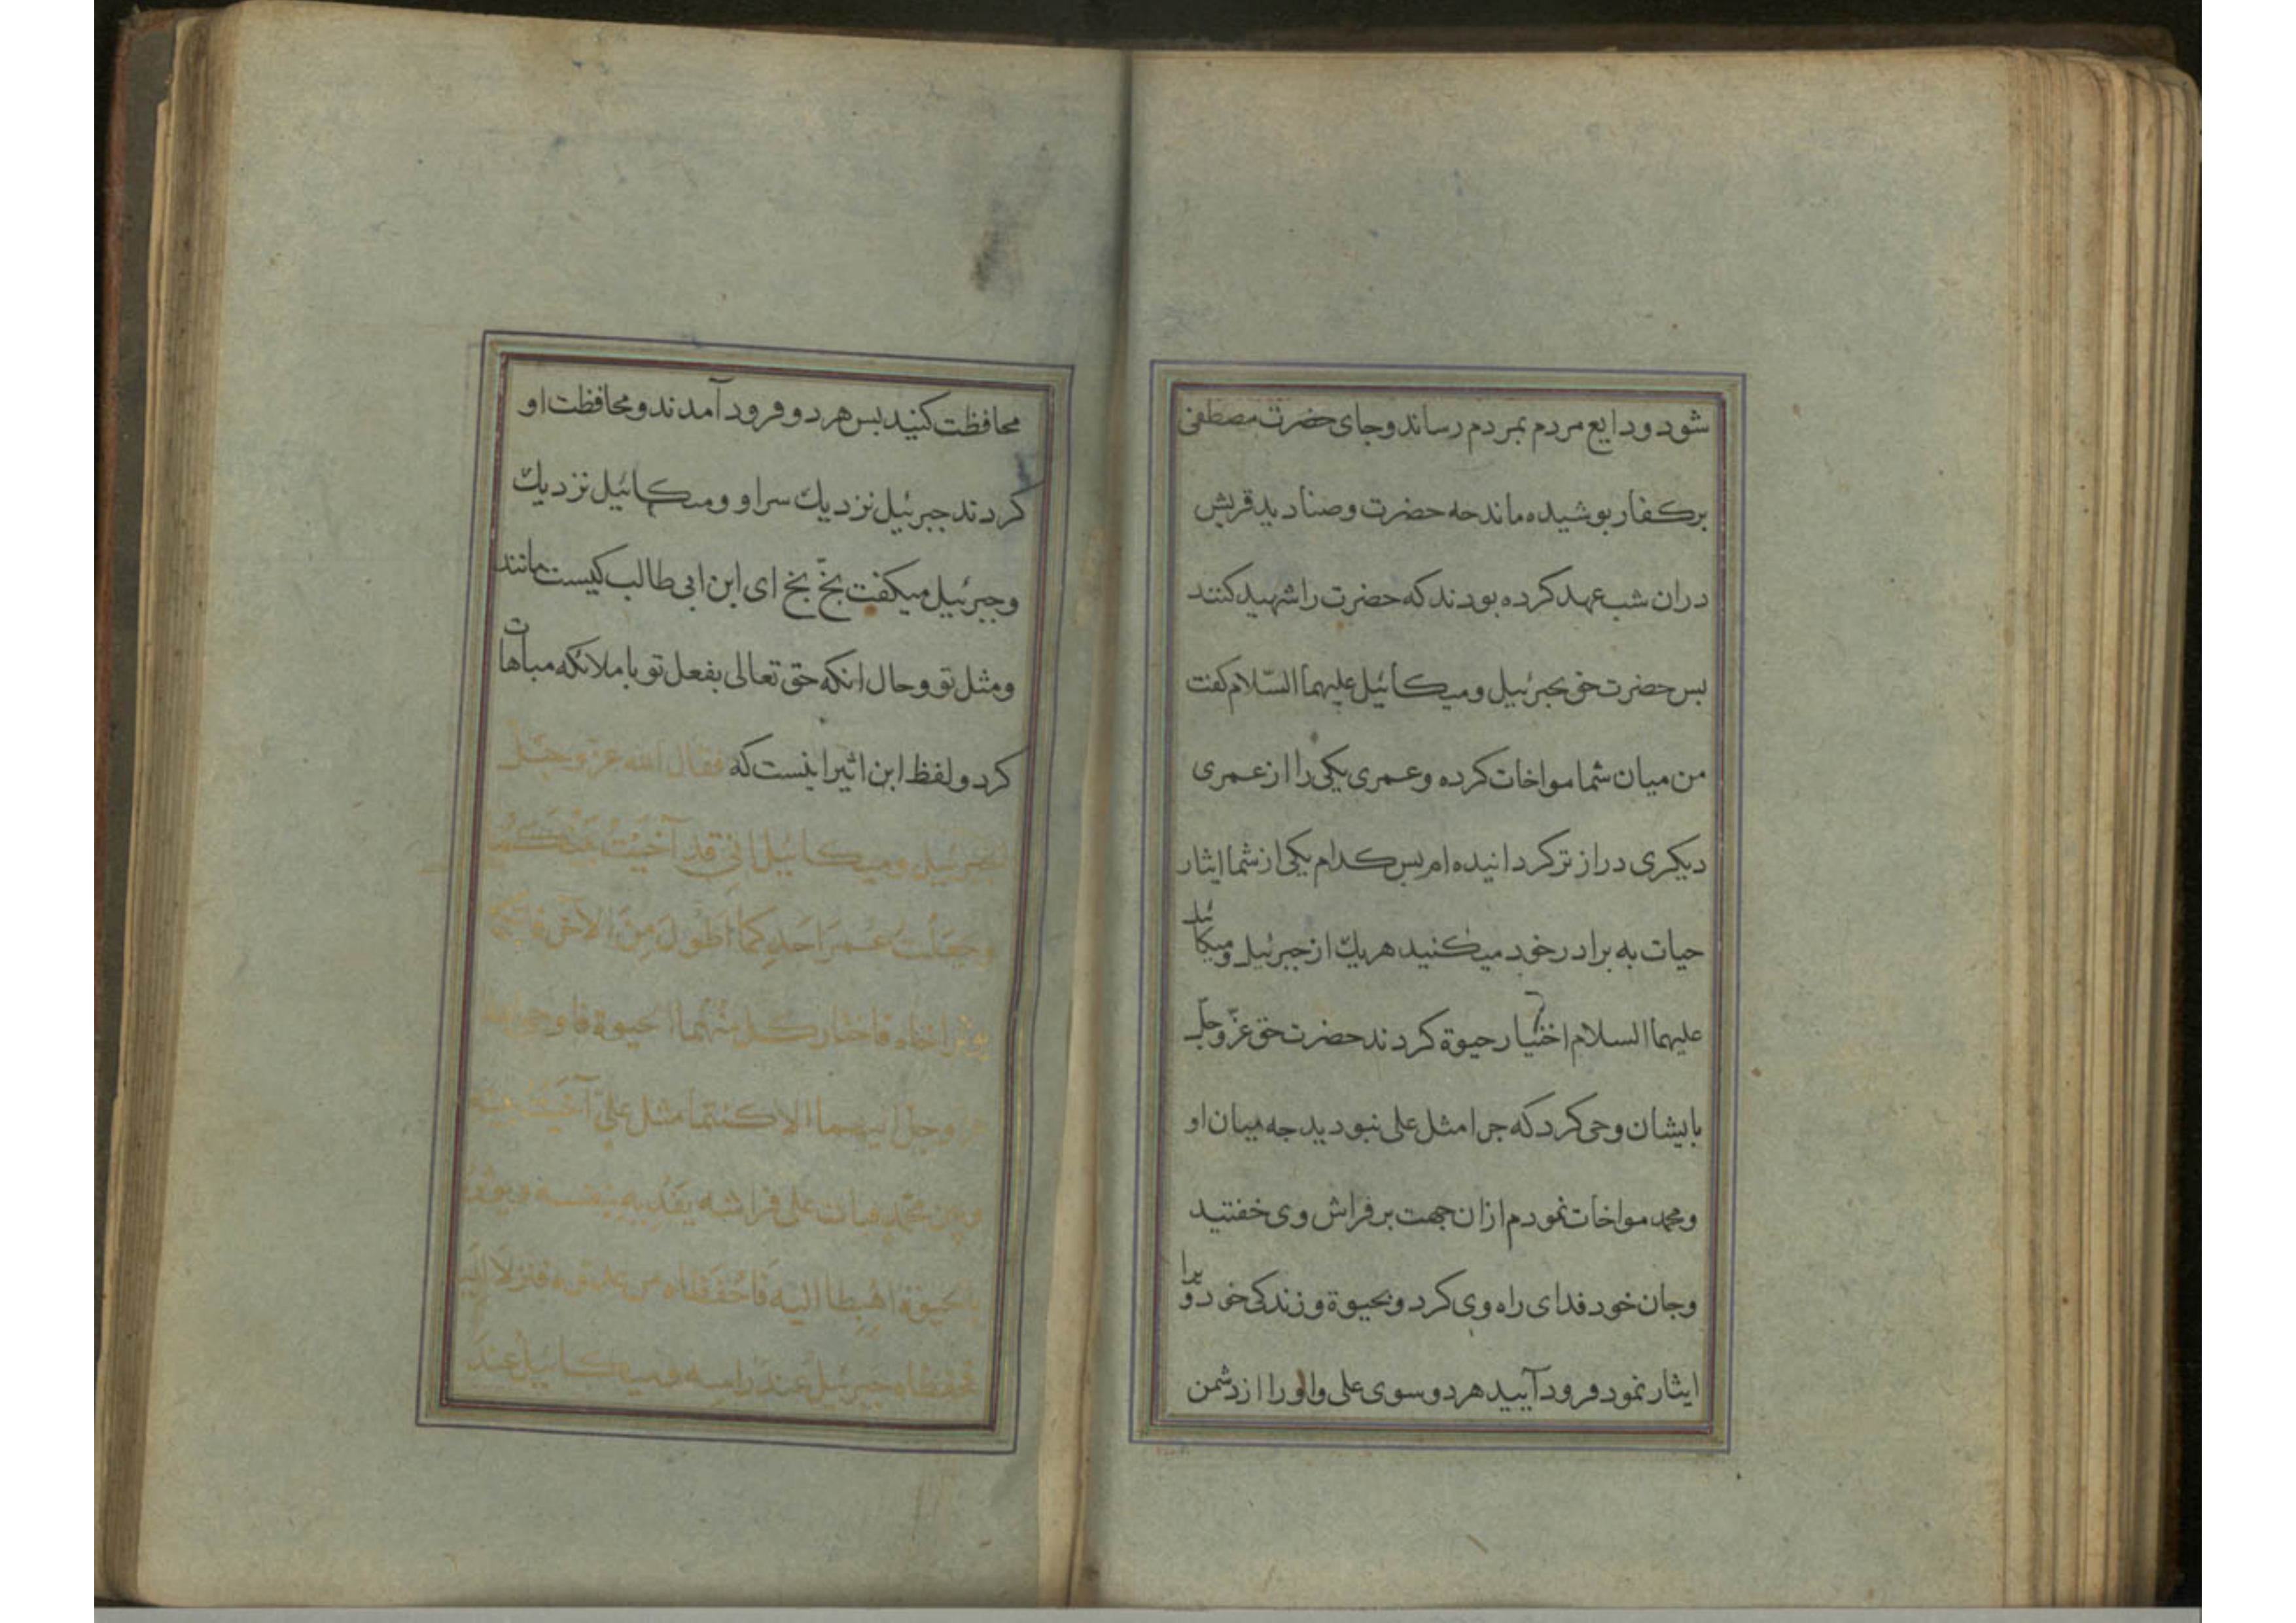 شود و دایع مردم بمردم رساند و جای حضرت مصطفی
بر کفار بوشیده ماند حه حضرت و صنادید قریش
دران شب عهد کرده بودند که حضرت را شهید کنند
بس حضرت حق بجبرئیل و میکائیل علیهما السّلام کفت
من میان شما مواخات کرده و عمری یکی را از عمری
دیکری درازتر کردانیده ام بس کدام یکی از شما ایثار
حیات به برادر خود میکنید هریك از جبرئیل و میکائیل
علیهما السلام اختیار حیوة کردند حضرت حق عزّ و جلّ
بایشان وحی کرد که جرا مثل علی نبودید جه میان او
و محمد مواخات نمودم ازان جهت بر فراش وی خفتید
و جان خود فدای راه وی کرد و بحیوة و زندکی خود ویرا
ایثار نمود فرود آیید هر دو سوی علی و او را از دشمن
محافظت کنید بس هر دو فرود آمدند و محافظت او
کردند جبرئیل نزدیك سر او و میکائیل نزدیك
و جبرئیل میکفت بخّ بخ ای ابن ابی طالب کیست مانند
و مثل تو و حال انکه حق تعالی بفعل تو با ملائکه مباهات
کرد و لفظ ابن اثیر اینست که فقال الله عزّ و جلّ
لجبرئیل و میکائیل انی قد آخَیْتُ بَیْنَکُمَا
و جعلت عمر احدکما اطول من الآخر فایکما
یوثر اخاه فاختار کل منهما الحیوة فاوحی الله
عز و جل الیهما الا کنتما مثل علیّ آخیت بینه
و بین محمّد فبات علی فراشه یفدیه بنفسه و یوثره
بالحیوة اهبطا الیه فاحفظاه من عدوّه فنزلا الیه
فحفظاه جبرئیل عند راسه و میکائیل عند